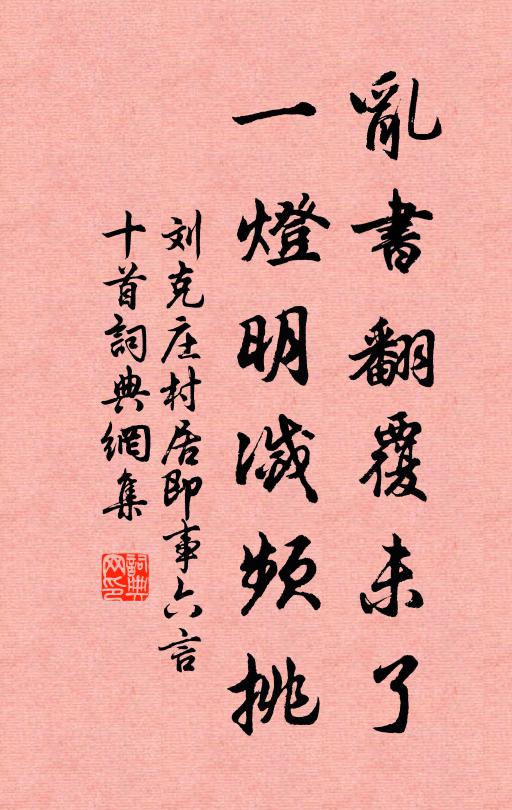 亂書翻覆未了
一燈明滅頻挑
刘克庄村居即事六言
十首詞典網集
詞典
网印